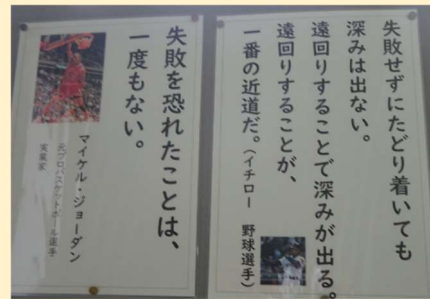 失敗せずにたどり着いても
深みは出ない。
遠回りすることで深みが出る。
遠回りすることが、
一番の近道だ。(イチロー 野球選手)
失敗を恐れたことは、
一度もない。
マイケル・ジョーダン
元プロバスケットボール選手
実業家